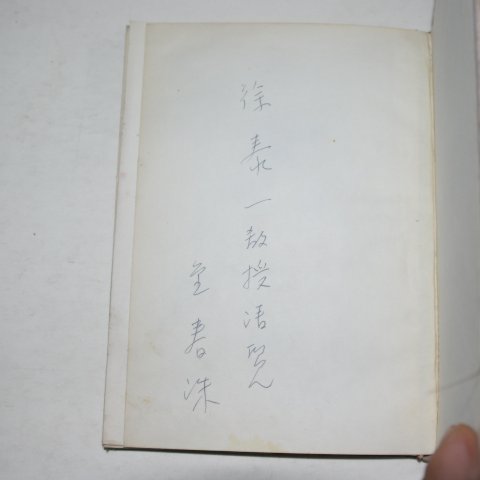 徐泰一敎授淸覽
金春洙